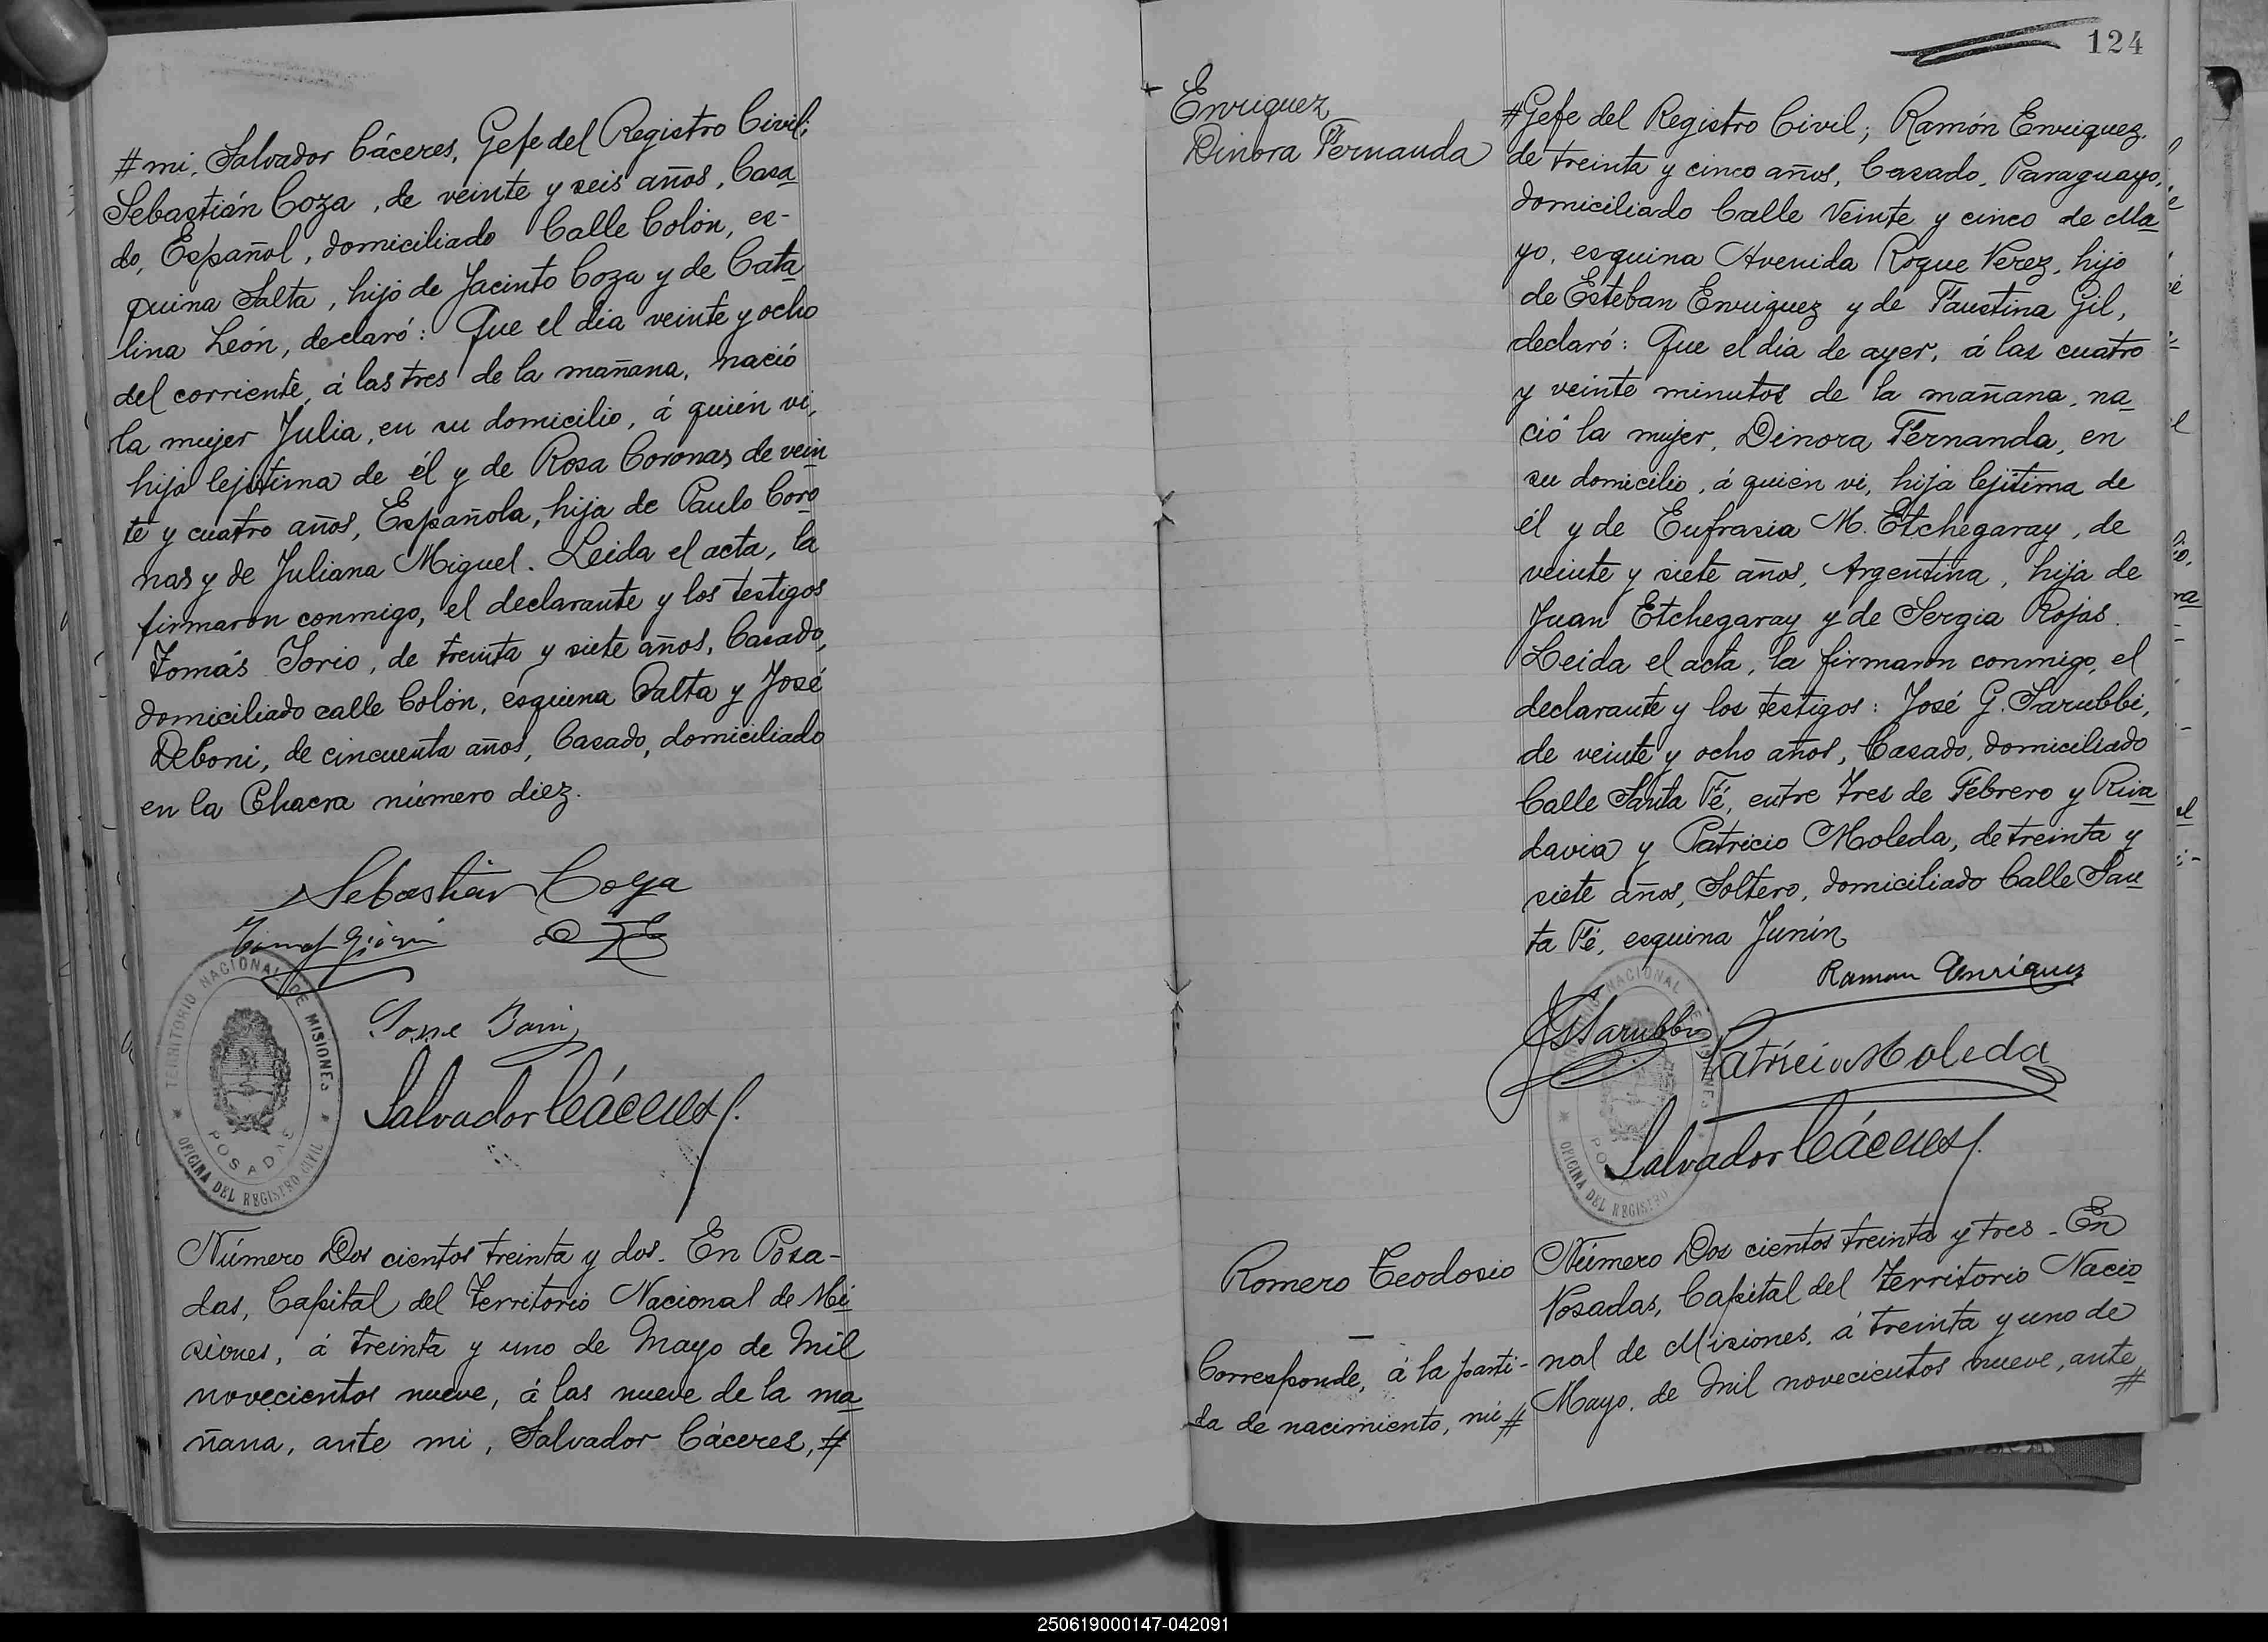 # mi, Salvador Cáceres, Gefe del Registro Civil;
Sebastián Coza, de veinte y seis años, Casa
do, Español, domiciliado Calle Colón, es-
quina Salta, hijo de Jacinto Coza y de Cata
lina León, declaró: Que el dia veinte y ocho
del corriente, á las tres de la mañana, nació
la mujer Julia, en su domicilio, á quien vi,
hija lejítima de él y de Rosa Coronas, de vein
te y cuatro años, Española, hija de Paulo Coro
nas y de Juliana Miguel. Leida el acta, la
firmaron conmigo, el declarante y los testigos
Tomás Iorio, de treinta y siete años, Casado,
domiciliado calle Colón, esquina Salta y José
Deboni, de cincuenta años, Casado, domiciliado
en la Chacra número diez.
Sebastián Coza
Salvador Cáceres
TERRITORIO NACIONAL DE MISIONES
POSADAS
OFICINA DEL REGISTRO CIVIL
Número Dos cientos treinta y dos. En Posa-
das, Capital del Territorio Nacional de Mi
siones, á treinta y uno de Mayo de Mil
novecientos nueve, á las nueve de la ma
ñana, ante mi, Salvador Cáceres, #
124
Enriquez,
Dinora Fernanda
# Gefe del Registro Civil; Ramón Enriquez,
de treinta y cinco años, Casado, Paraguayo,
domiciliado Calle Veinte y cinco de Ma
yo, esquina Avenida Roque Perez, hijo
de Esteban Enriquez y de Faustina Gil,
declaró: Que el dia de ayer, á las cuatro
y veinte minutos de la mañana, na
ció la mujer, Dinora Fernanda, en
su domicilio, á quien vi, hija lejítima de
él y de Eufrasia M. Etchegaray, de
veinte y siete años, Argentina, hija de
Juan Etchegaray y de Sergia Rojas.
Leida el acta, la firmaron conmigo, el
declarante y los testigos: José G. Sarubbi,
de veinte y ocho años, Casado, domiciliado
Calle Santa Fé, entre Tres de Febrero y Riva
davia y Patricio Moleda, de treinta y
siete años, Soltero, domiciliado Calle San
ta Fé, esquina Junin,
Ramon Enriquez
JGSarubbi
Patricio Moleda
Salvador Cáceres
Romero Teodosio
Corresponde, á la parti-
da de nacimiento, nú #
Número Dos cientos treinta y tres - En
Posadas, Capital del Territorio Nacio
nal de Misiones, á treinta y uno de
Mayo, de Mil novecientos nueve, ante
#
250619000147-042091